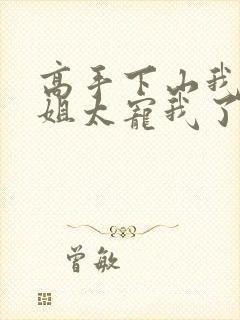 高手下山我
姐太宠我了
曾敏